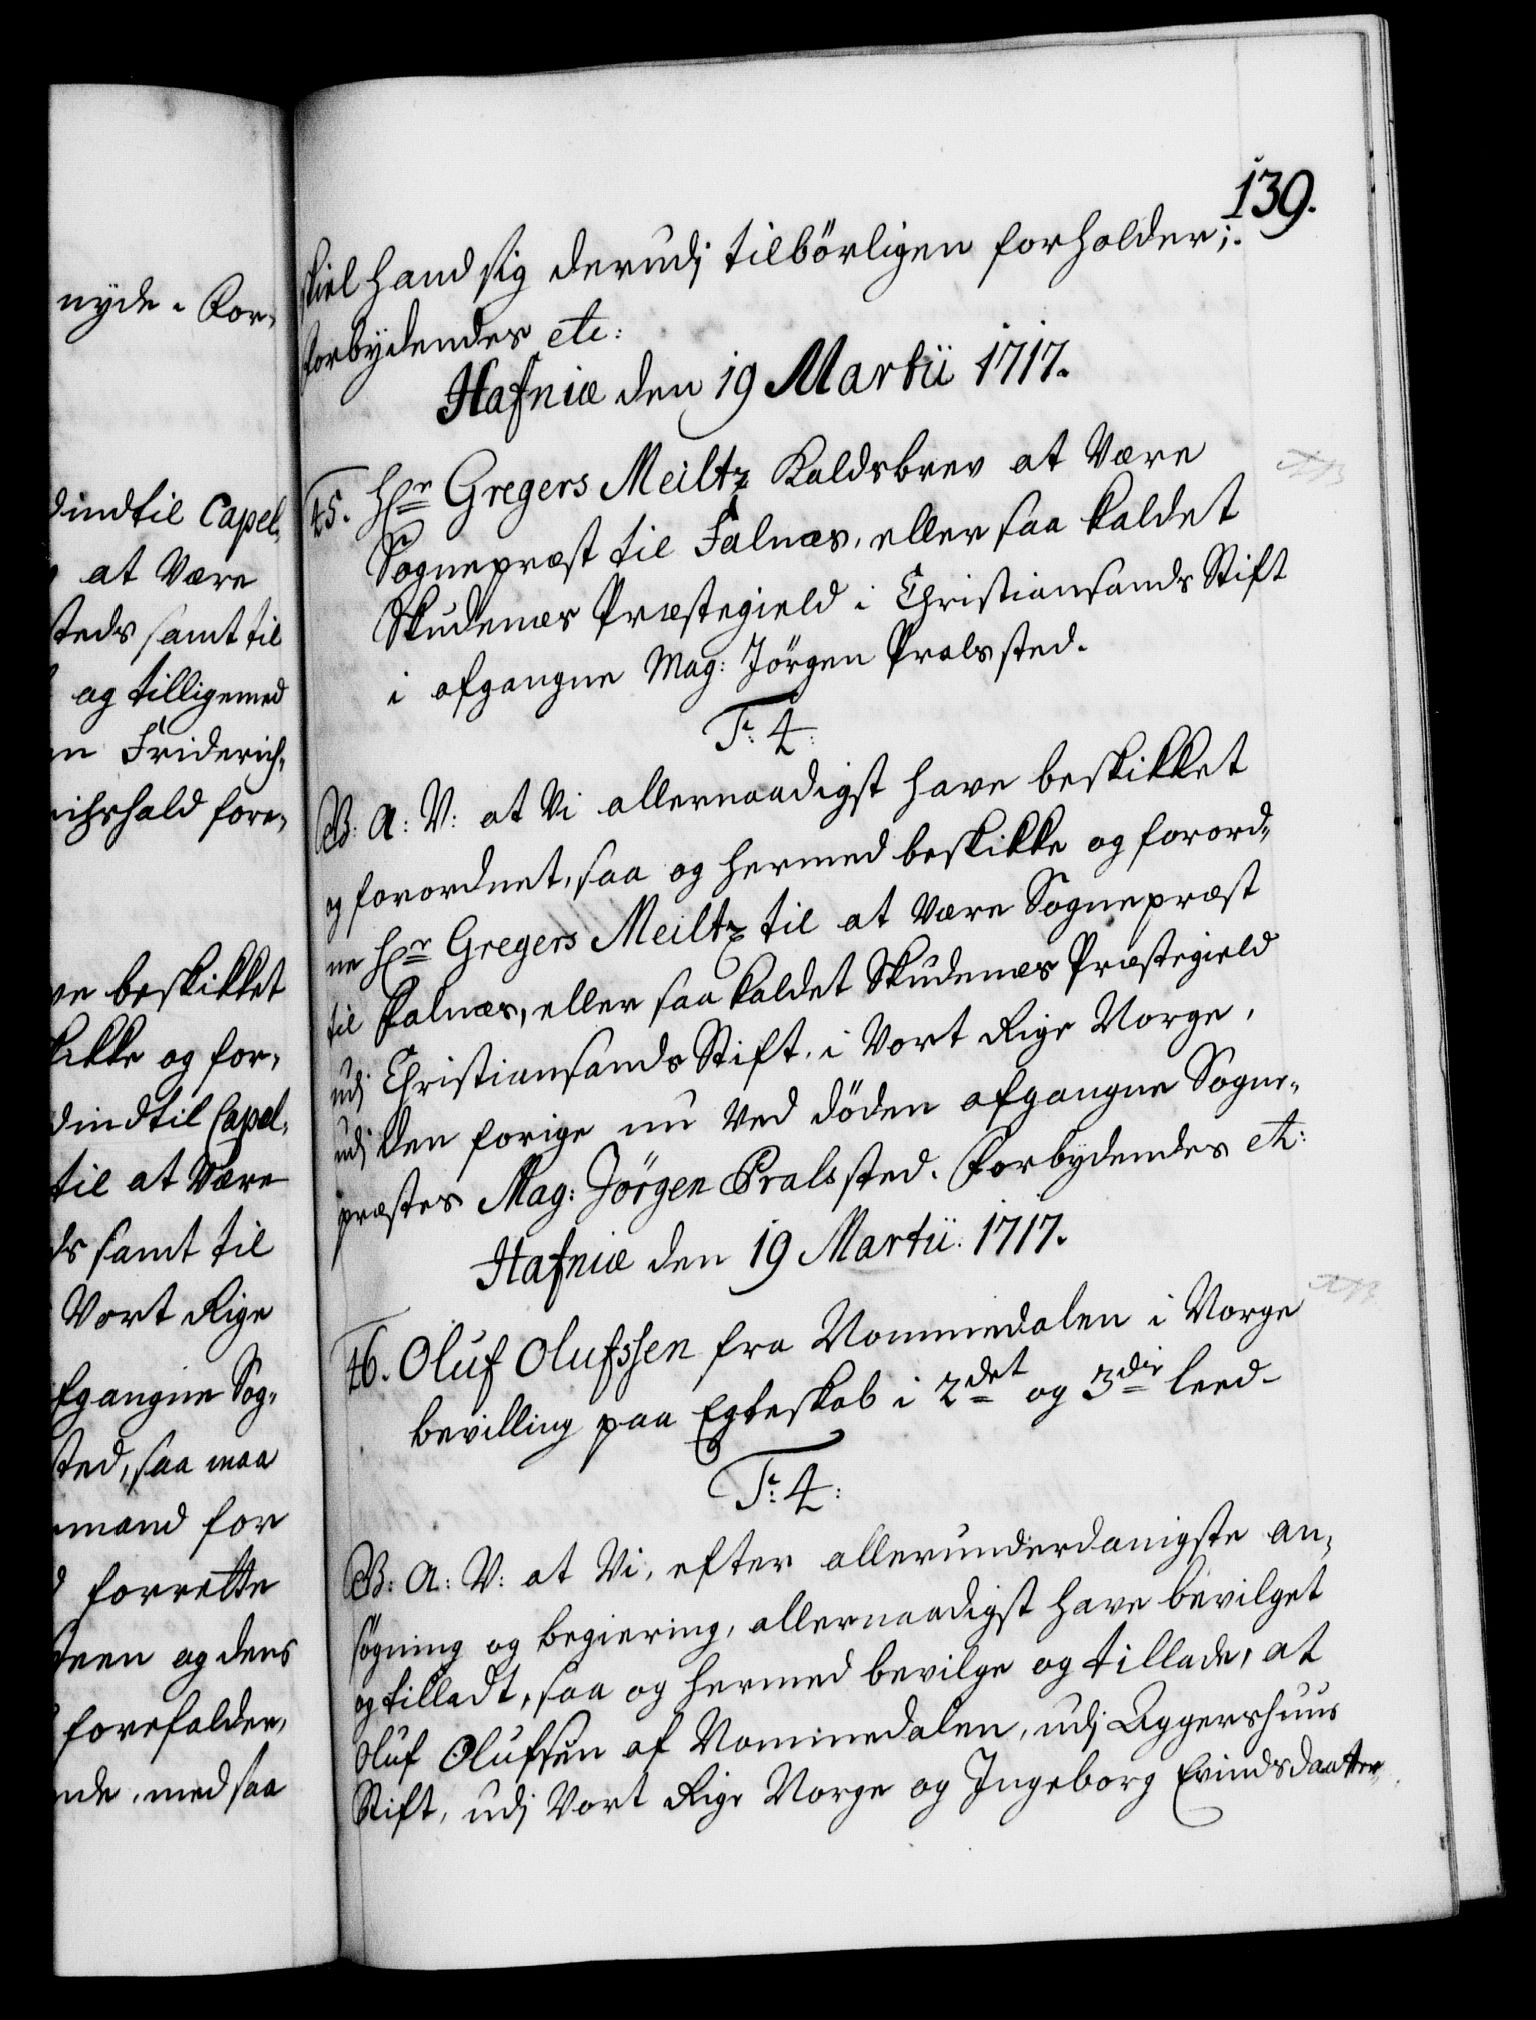 nyde. For-
dindtil Capel-
at Være
steds samt til
og tilligemed
en Friderich-
richshald fore-
ve beskikket
kikke og for-
dindtil Capel-
til at Være
ds samt til
Vort Rige
fgangne Sog-
sted, saa maa
mand for
forrette
deen og dens
forefalder,
nde, med saa
139.
skiel hand sig derudj tilbörligen forholder;.
Forbydendes etc:
Hafniæ den 19 Martii 1717.
45. Hr Gregers Meiltz Kaldsbrev at Være
Sognepræst til Falnæs, eller saa kaldet
Skudenæs Præstegield i Christiansands Stift
i afgangne Mag: Jörgen Pralssted.
Fr: 4:
G: A: V: at Vi allernaadigst have beskikket
og forordnet, saa og hermed beskikke og forord-
ne Hr Gregers Meiltz til at være Sognepræst
til Falnæs, eller saa kaldet Skudenæs Præstegield
udj Christiansands Stift, i Vort Rige Norge,
udj den forige nu ved döden afgangne Sogne-
præstes Mag: Jörgen Pralssted. Forbydendes etc:
Hafniæ den 19 Martii. 1717.
46. Oluf Olufssen fra Nommedalen i Norge
bevilling paa Egteskab i 2det og 3die leed-
Fr: 4:
G: A: V: at Vi, efter allerunderdanigste an-
søgning og begiering, allernaadigst have bevilget
og tilladt, saa og hermed bevilge og tillade, at
Oluf Olufsen af Nommedalen, udj Aggershuus
Stift, udj Vort Rige Norge og Ingeborg Evindsdaatter,